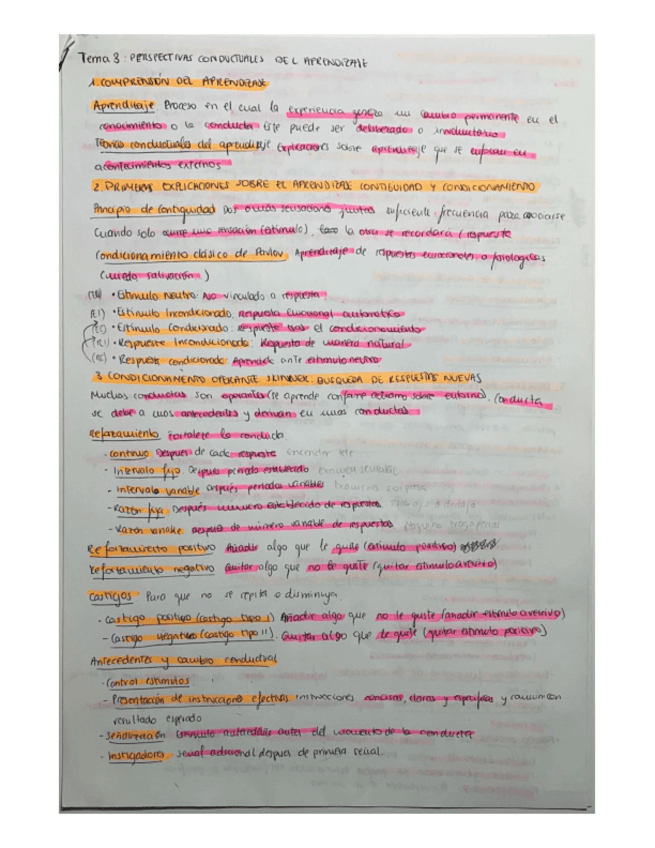 Tema 3: PERSPECTIVAS CONDUCTUALES DEL APRENDIZAJE
1. COMPRENSIÓN DEL APRENDIZAJE
Aprendizaje Proceso en el cual la experiencia genera un cambio permanente en el
conocimiento o la conducta Este puede ser deliberado o involuntario
Teorías conductuales del aprendizaje Explicaciones sobre aprendizaje que se enfocan en
acontecimientos externos
2. PRIMERAS EXPLICACIONES SOBRE EL APRENDIZAJE CONTIGUIDAD Y CONDICIONAMIENTO
Principio de contiguidad Dos o más sensaciones juntas suficiente frecuencia para asociarse
Cuando solo una sensación (estimulo), la otra se recordará (respuesta
Condicionamiento clásico de Pavlov. Aprendizaje de respuestas emocionales o fisiologicas
(miedo, salivación)
(EN) • Estimulo Neutro: No vinculado a respuesta
(EI) • Estimulo Incondicionado, respuesta Emocional automatica
(EC) • Estimulo Condicionado: respuesta tras el condicionamiento
(RI) • Respuesta Incondicionada: Respuesta de manera natural
(RC) • Respuesta condicionada: Aprendida ante estimulo neutro
3. CONDICIONAMIENTO OPERANTE SKINNER: BUSQUEDA DE RESPUESTAS NUEVAS
Muchas conductas son operantes (se aprende conforme actuamos sobre entorno). Conducta
se debe a unos antecedentes y derivan en unas conductas
Reforzamiento Fortalece la conducta
- continuo Despues de cada respuesta Encender tele
- Intervalo fijo Despues periodo establecido Examen semanal
- Intervalo variable despues periodos variables Examenes sorpresa
- Razon fija Después numero establecido de respuestas.
- Razon variable despues de número variable de respuestas
Reforzamiento positivo Añadir algo que le guste (estimulo positivo)
Reforzamiento negativo Quitar algo que no le guste (quitar estimulo aversivo)
Castigos Para que no se repita o disminuya
- Castigo positivo (castigo tipo I) Añadir algo que no le guste (anadir estimulo aversivo)
- Castigo negativo (castigo tipo II). Quitar algo que le guste (quitar estimulo positivo)
Antecedentes y cambio conductual
- Control estimulos
- Presentación de instrucciones efectivas instrucciones concisas, claras y especificas y comunican
resultado esperado
- Señalización Estimulo antes del momento de la conducta
- Instigadores: señal adicional despues de primera señal.